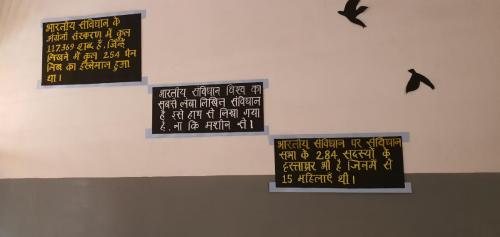 भारतीय संविधान के
अंग्रेजी संस्करण में कुल
117,369 शब्द हैं, जिन्हें
लिखने में कुल 254 पेन
निब का इस्तेमाल हुआ
था।
भारतीय संविधान विश्व का
सबसे लंबा लिखित संविधान
है इसे हाथ से लिखा गया
है, ना कि मशीन से।
भारतीय संविधान पर संविधान
सभा के 284 सदस्यों के
हस्ताक्षर भी हैं जिनमें से
15 महिलाएं थी।